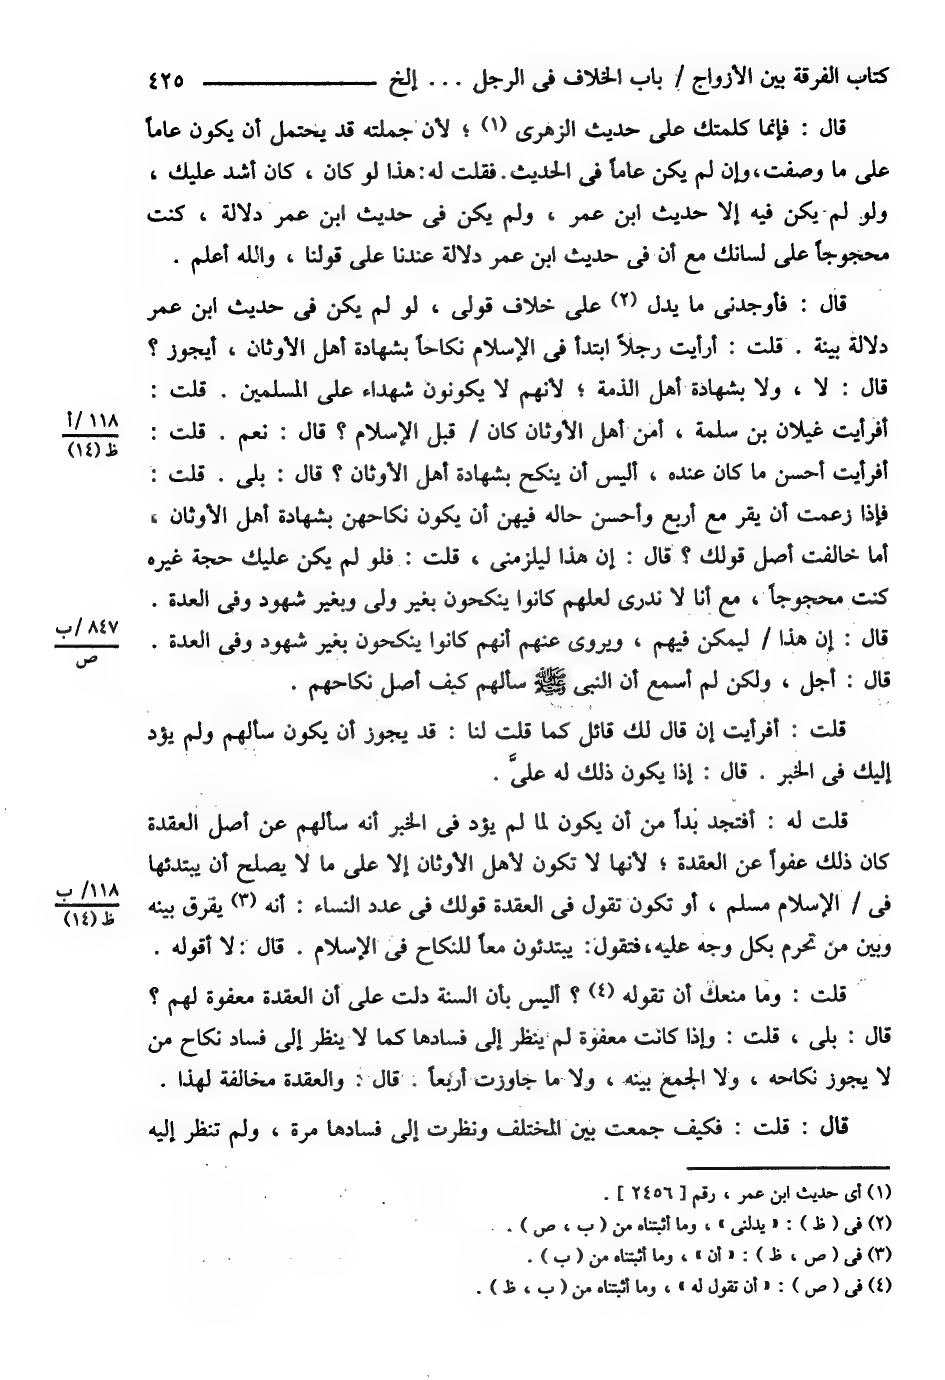 كتاب الفرقة بين الأزواج / باب الخلاف فى الرجل ... إلخ ــــــــــــــــ ٤٢٥
قال : فإنما كلمتك على حديث الزهرى (١) ؛ لأن جملته قد يحتمل أن يكون عاماً
على ما وصفت،وإن لم يكن عاماً فى الحديث.فقلت له:هذا لو كان ، كان أشد عليك ،
ولو لم يكن فيه إلا حديث ابن عمر ، ولم يكن فى حديث ابن عمر دلالة ، كنت
محجوجاً على لسانك مع أن فى حديث ابن عمر دلالة عندنا على قولنا ، والله أعلم .
قال : فأوجدنى ما يدل (٢) على خلاف قولى ، لو لم يكن فى حديث ابن عمر
دلالة بينة . قلت : أرأيت رجلاً ابتدأ فى الإسلام نكاحاً بشهادة أهل الأوثان ، أيجوز ؟
قال : لا ، ولا بشهادة أهل الذمة ؛ لأنهم لا يكونون شهداء على المسلمين . قلت :
أفرأيت غيلان بن سلمة ، أمن أهل الأوثان كان / قبل الإسلام ؟ قال : نعم . قلت :
١١٨ /أ
ظ (١٤)
أفرأيت أحسن ما كان عنده ، أليس أن ينكح بشهادة أهل الأوثان ؟ قال : بلى . قلت :
فإذا زعمت أن يقر مع أربع وأحسن حاله فيهن أن يكون نكاحهن بشهادة أهل الأوثان ،
أما خالفت أصل قولك ؟ قال : إن هذا ليلزمنى ، قلت : فلو لم يكن عليك حجة غيره
كنت محجوجاً ، مع أنا لا ندرى لعلهم كانوا ينكحون بغير ولى وبغير شهود وفى العدة .
قال : إن هذا / ليمكن فيهم ، ويروى عنهم أنهم كانوا ينكحون بغير شهود وفى العدة .
٨٤٧ /ب
ص
قال : أجل ، ولكن لم أسمع أن النبى ﷺ سألهم كيف أصل نكاحهم .
قلت : أفرأيت إن قال لك قائل كما قلت لنا : قد يجوز أن يكون سألهم ولم يؤد
إليك فى الخبر . قال : إذا يكون ذلك له علىَّ .
قلت له : أفتجد بُداً من أن يكون لما لم يؤد فى الخبر أنه سألهم عن أصل العقدة
كان ذلك عفواً عن العقدة ؛ لأنها لا تكون لأهل الأوثان إلا على ما لا يصلح أن يبتدئها
فى / الإسلام مسلم ، أو تكون تقول فى العقدة قولك فى عدد النساء : أنه (٣) يفرق بينه
١١٨/ ب
ظ (١٤)
وبين من تحرم بكل وجه عليه،فتقول: يبتدئون معاً للنكاح فى الإسلام . قال :لا أقوله .
قلت : وما منعك أن تقوله (٤) ؟ أليس بأن السنة دلت على أن العقدة معفوة لهم ؟
قال : بلى ، قلت : وإذا كانت معفوة لم ينظر إلى فسادها كما لا ينظر إلى فساد نكاح من
لا يجوز نكاحه ، ولا الجمع بينه ، ولا ما جاوزت أربعاً . قال : والعقدة مخالفة لهذا .
قال : قلت : فكيف جمعت بين المختلف ونظرت إلى فسادها مرة ، ولم تنظر إليه
(١) أى حديث ابن عمر ، رقم [ ٢٤٥٦ ] .
(٢) فى ( ظ ) : « يدلنى » ، وما أثبتناه من ( ب ، ص ) .
(٣) فى ( ص ، ظ ) : « أن » ، وما أثبتناه من ( ب ) .
(٤) فى ( ص ) : « أن تقول له » ، وما أثبتناه من ( ب ، ظ ) .